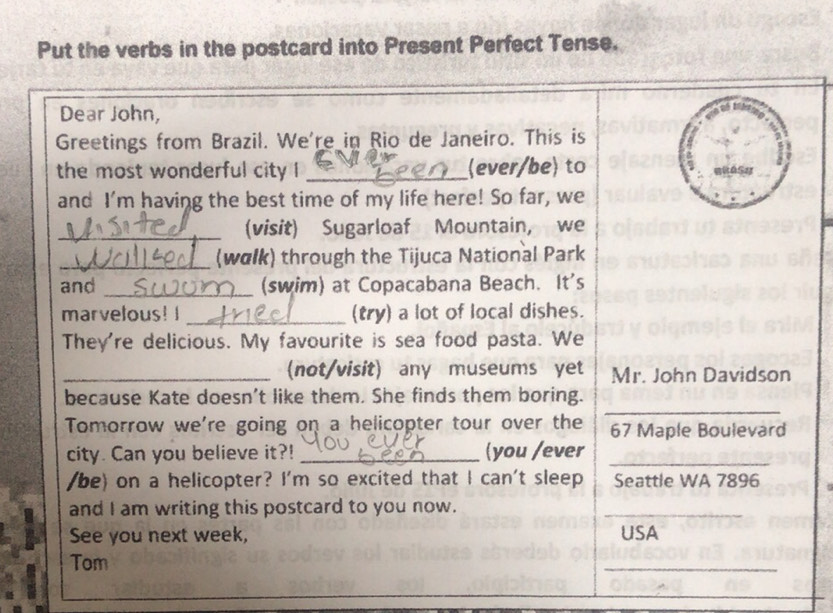 Put the verbs in the postcard into Present Perfect Tense.
Dear John,
Greetings from Brazil. We're in Rio de Janeiro. This is
the most wonderful city ever been (ever/be) to
and I'm having the best time of my life here! So far, we
Visited (visit) Sugarloaf Mountain, we
Walked (walk) through the Tijuca National Park
and swum (swim) at Copacabana Beach. It's
marvelous! I tried (try) a lot of local dishes.
They're delicious. My favourite is sea food pasta. We
(not/visit) any museums yet
because Kate doesn't like them. She finds them boring.
Tomorrow we're going on a helicopter tour over the
city. Can you believe it?! You ever been (you /ever
/be) on a helicopter? I'm so excited that I can't sleep
and I am writing this postcard to you now.
See you next week,
Tom
BRASIL
Mr. John Davidson
67 Maple Boulevard
Seattle WA 7896
USA